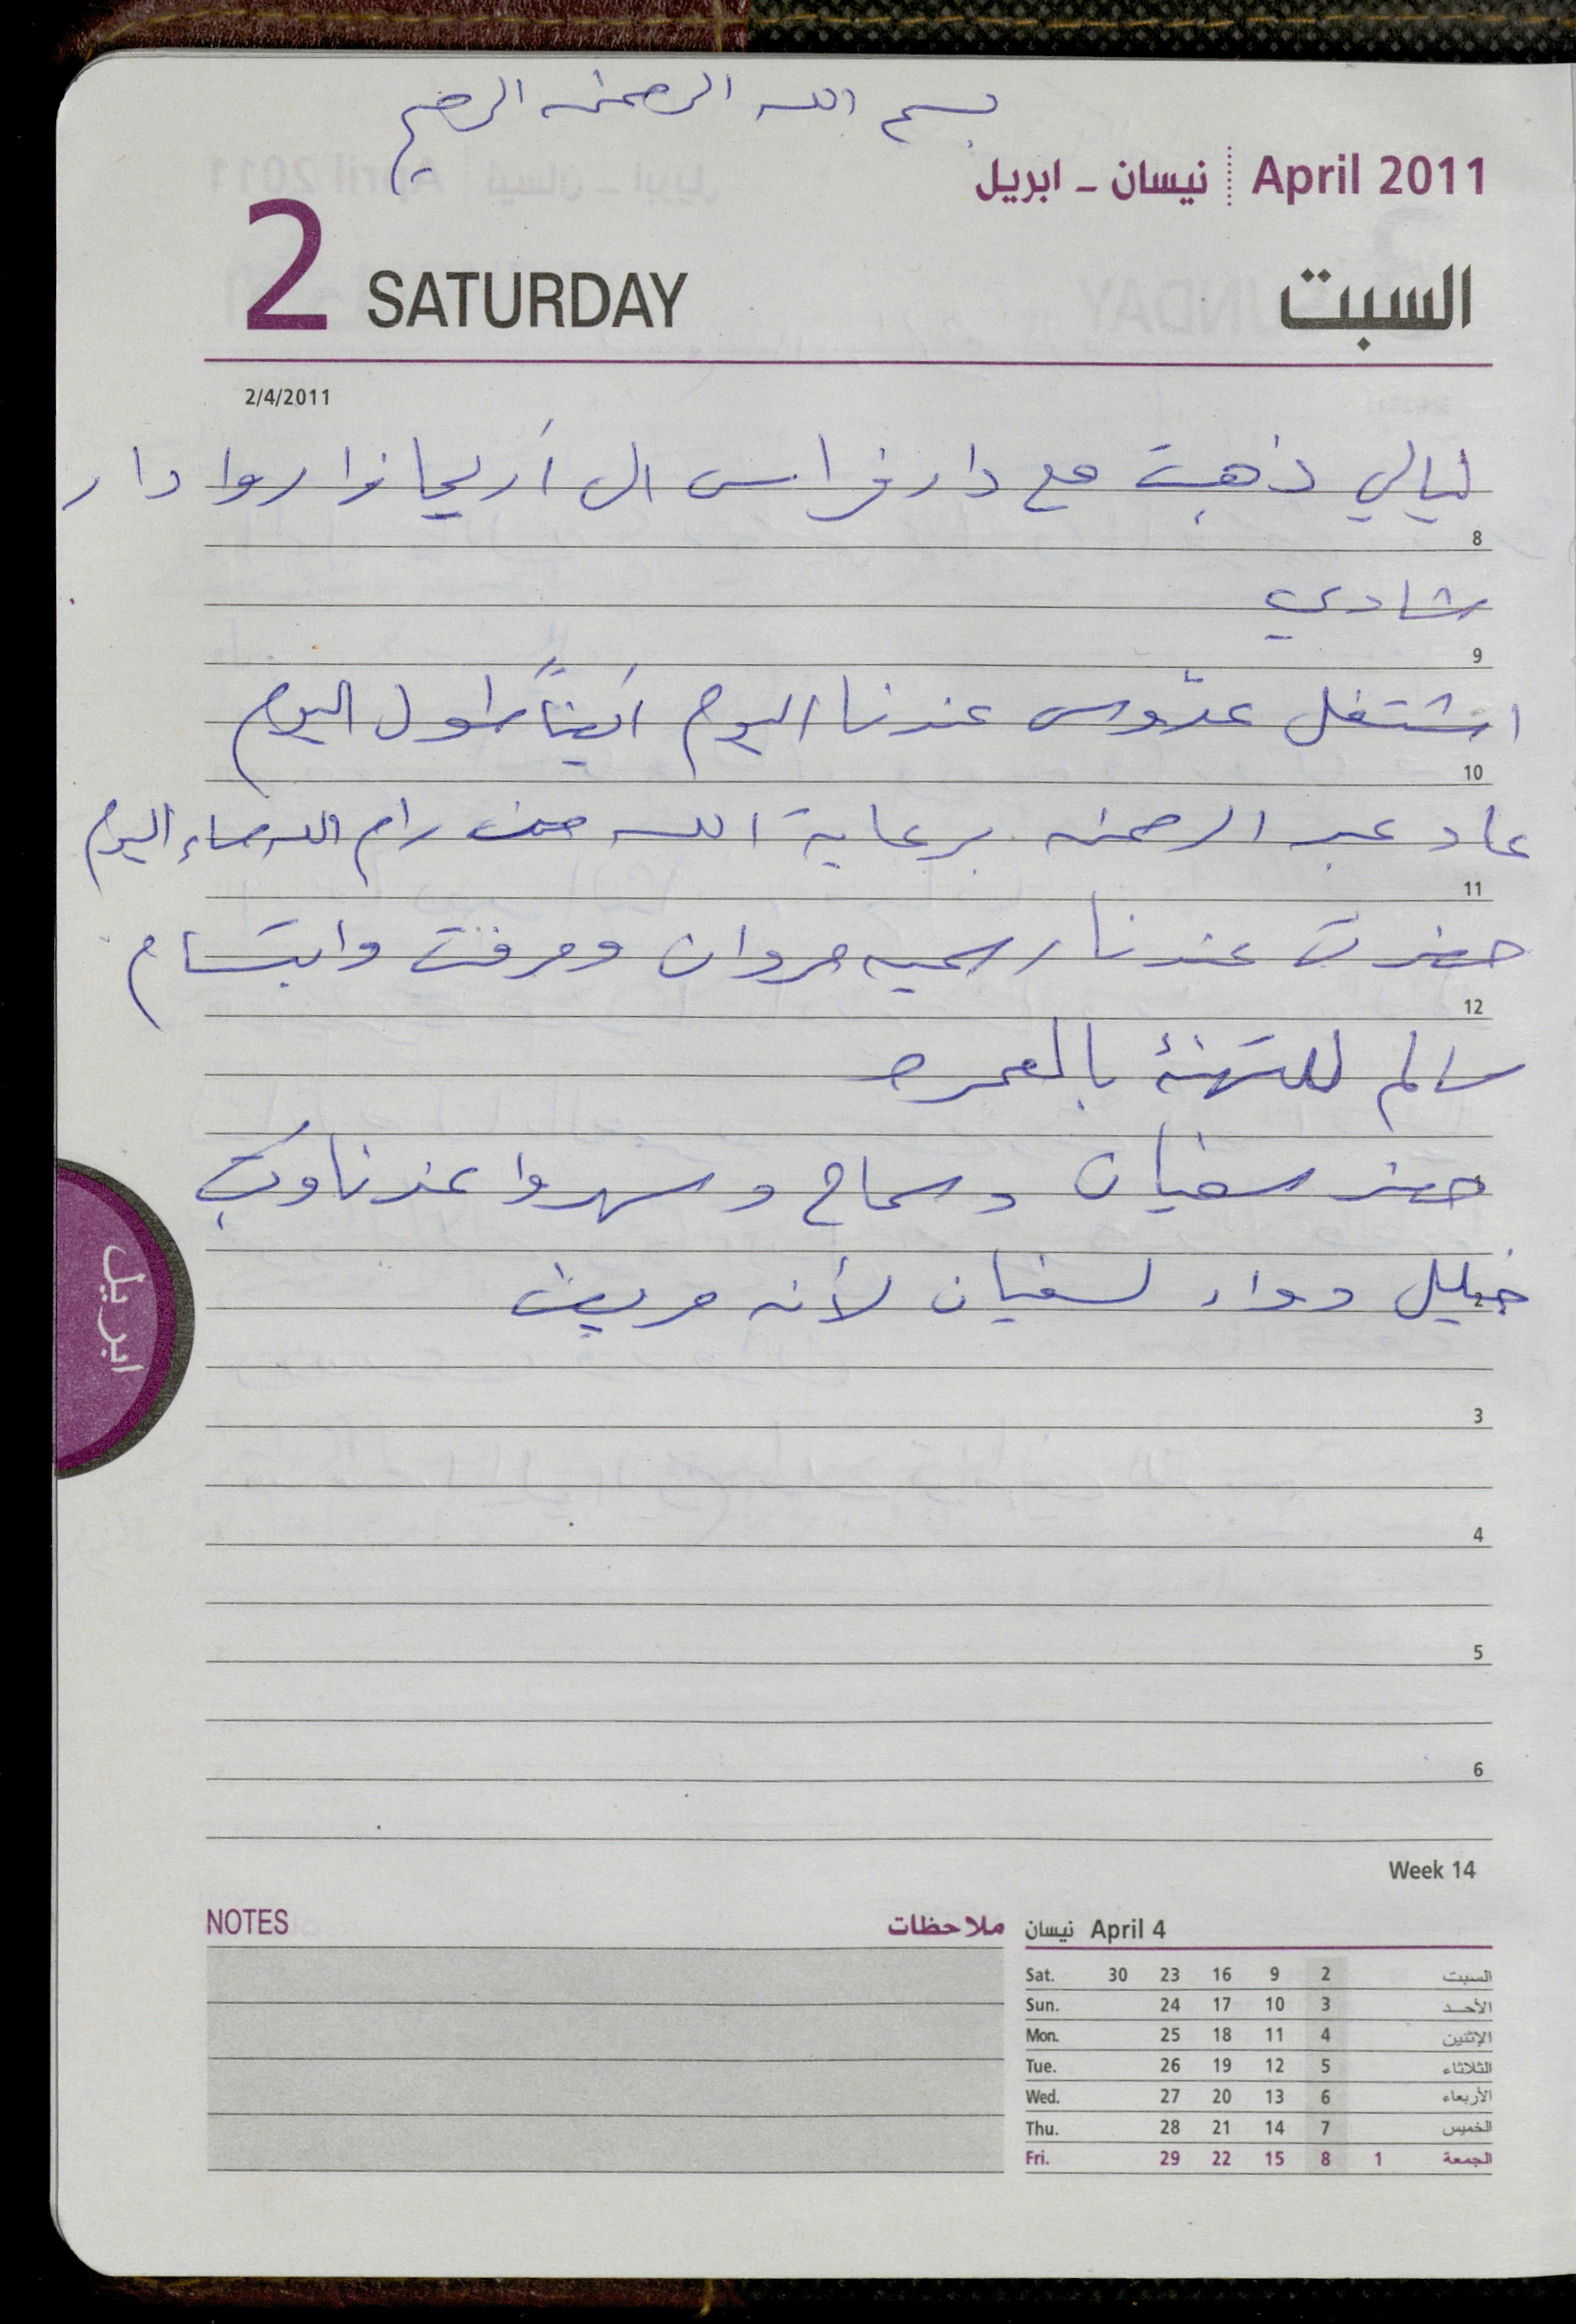 بسم الله الرحمن الرحيم
April 2011 نيسان - ابريل
2 SATURDAY السبت
2/4/2011
ليالي ذهبت مع دار فراس الى أريحا زاروا دار
8
شادي
9
اشتغل عدّوس عندنا اليوم أيضاً طول اليوم
10
عاد عبد الرحمن برعاية الله من رام الله مساء اليوم
11
حضرت عندنا رسميه مروان ومرفت وابتسام
12
سالم للتهنئة بالعمره
حضر سفيان وسماح وسهروا عندنا وكتب
خليل دواء لسفيان لأنه مريض
2
ابريل
3
4
5
6
Week 14
NOTES ملاحظات
نيسان April 4
Sat. 30 23 16 9 2 السبت
Sun. 24 17 10 3 الأحد
Mon. 25 18 11 4 الإثنين
Tue. 26 19 12 5 الثلاثاء
Wed. 27 20 13 6 الأربعاء
Thu. 28 21 14 7 الخميس
Fri. 29 22 15 8 1 الجمعة